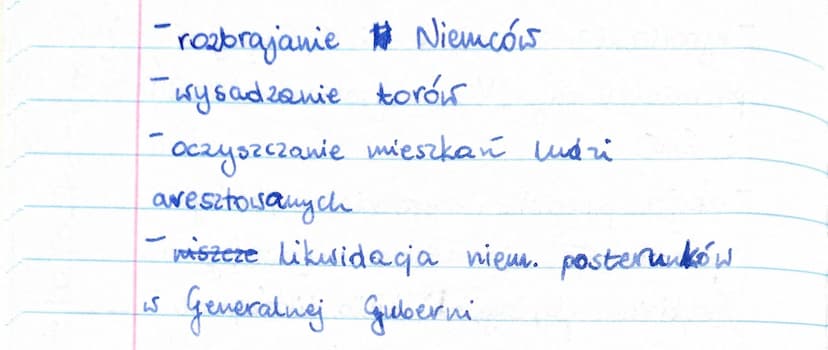 - rozbrajanie Niemców
- wysadzanie torów
- oczyszczanie mieszkań ludzi
aresztowanych
- niszcze likwidacja niem. posterunków
w Generalnej Guberni